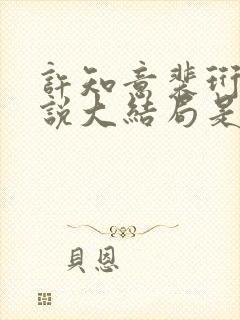 許知意裴珩
說大結局是
貝恩